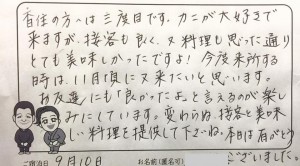 香住の方へは三度目です。カニが大好きで
来ますが、接客も良く、又料理も思った通り
とても美味しかったですよ!今度来所する
時は、11月頃に又来たいと思います。
お友達にも「良かったよ」と言えるのが楽し
みにしています。変わらぬ、接客と美味
しい料理を提供して下さいね。本日は有がとう
ございました
ご宿泊日 9月10日 お名前(匿名可)